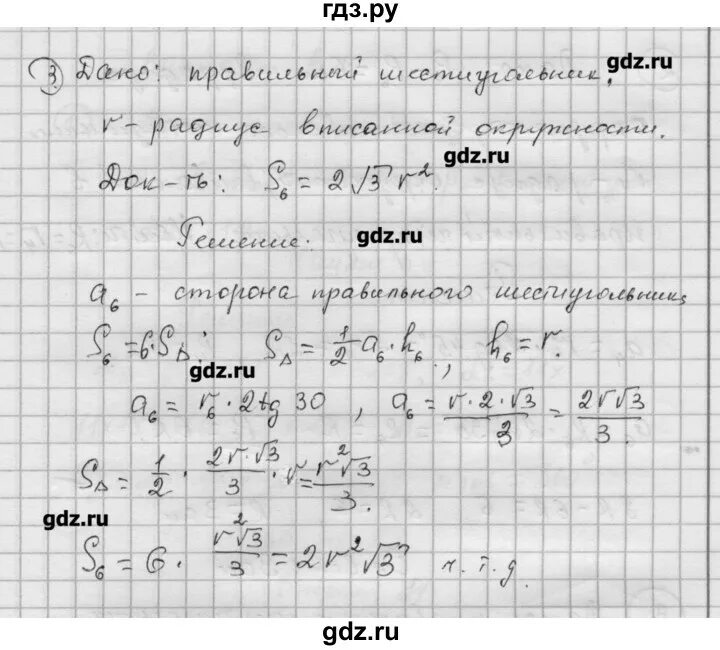 гдз.ру
3. Дано: правильный шестиугольник, gdz.ru
r – радиус вписанной окружности.
gdz.ru
Док-ть: S₆ = 2√3 r².
Решение: gdz.ru
a₆ – сторона правильного шестиугольник
S₆ = 6·S△; S△ = 1/2 a₆·h₆, h₆ = r.
gdz.ru
a₆ = r₆ · 2tg 30, a₆ = r·2·√3/3 = 2r√3/3.
S△ = 1/2 · 2r·√3/3 · r = r²√3/3.
gdz.ru
S₆ = 6 · r²√3/3 = 2r²√3 ч.т.д.
gdz.ru